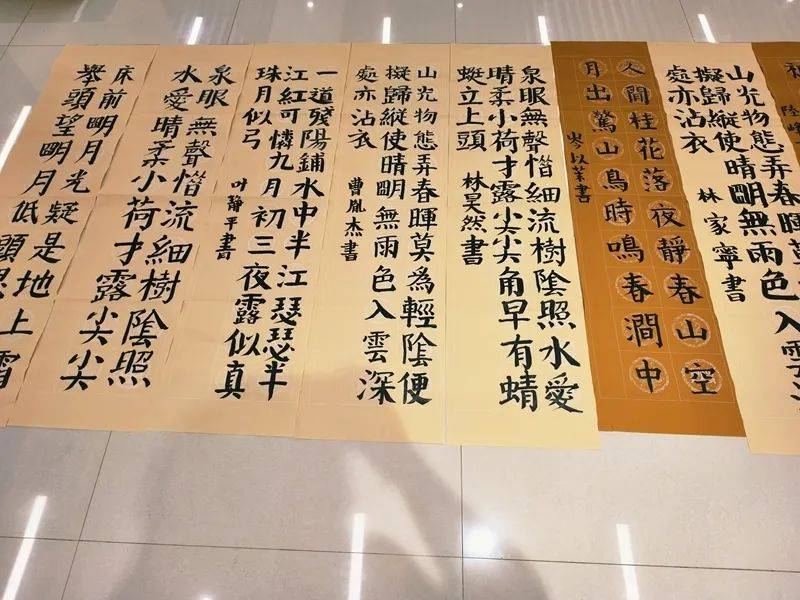 山光物態弄春暉莫
擬歸縱使晴明無雨色入雲
處亦沾衣
林家寧書
人閒桂花落夜靜春山空
月出驚山鳥時鳴春澗中
泉眼無聲惜細流樹陰照水愛
晴柔小荷才露尖尖角早有蜻
蜓立上頭
林昊然書
山光物態弄春暉莫為輕陰便
擬歸縱使晴明無雨色入雲深
處亦沾衣
曹胤杰書
一道發陽鋪水中半江瑟瑟半
江紅可憐九月初三夜露似真
珠月似弓
叶静平書
泉眼無聲惜流細樹陰照
水愛晴柔小荷才露尖尖
床前明月光疑是地上霜
舉頭望明月低頭思